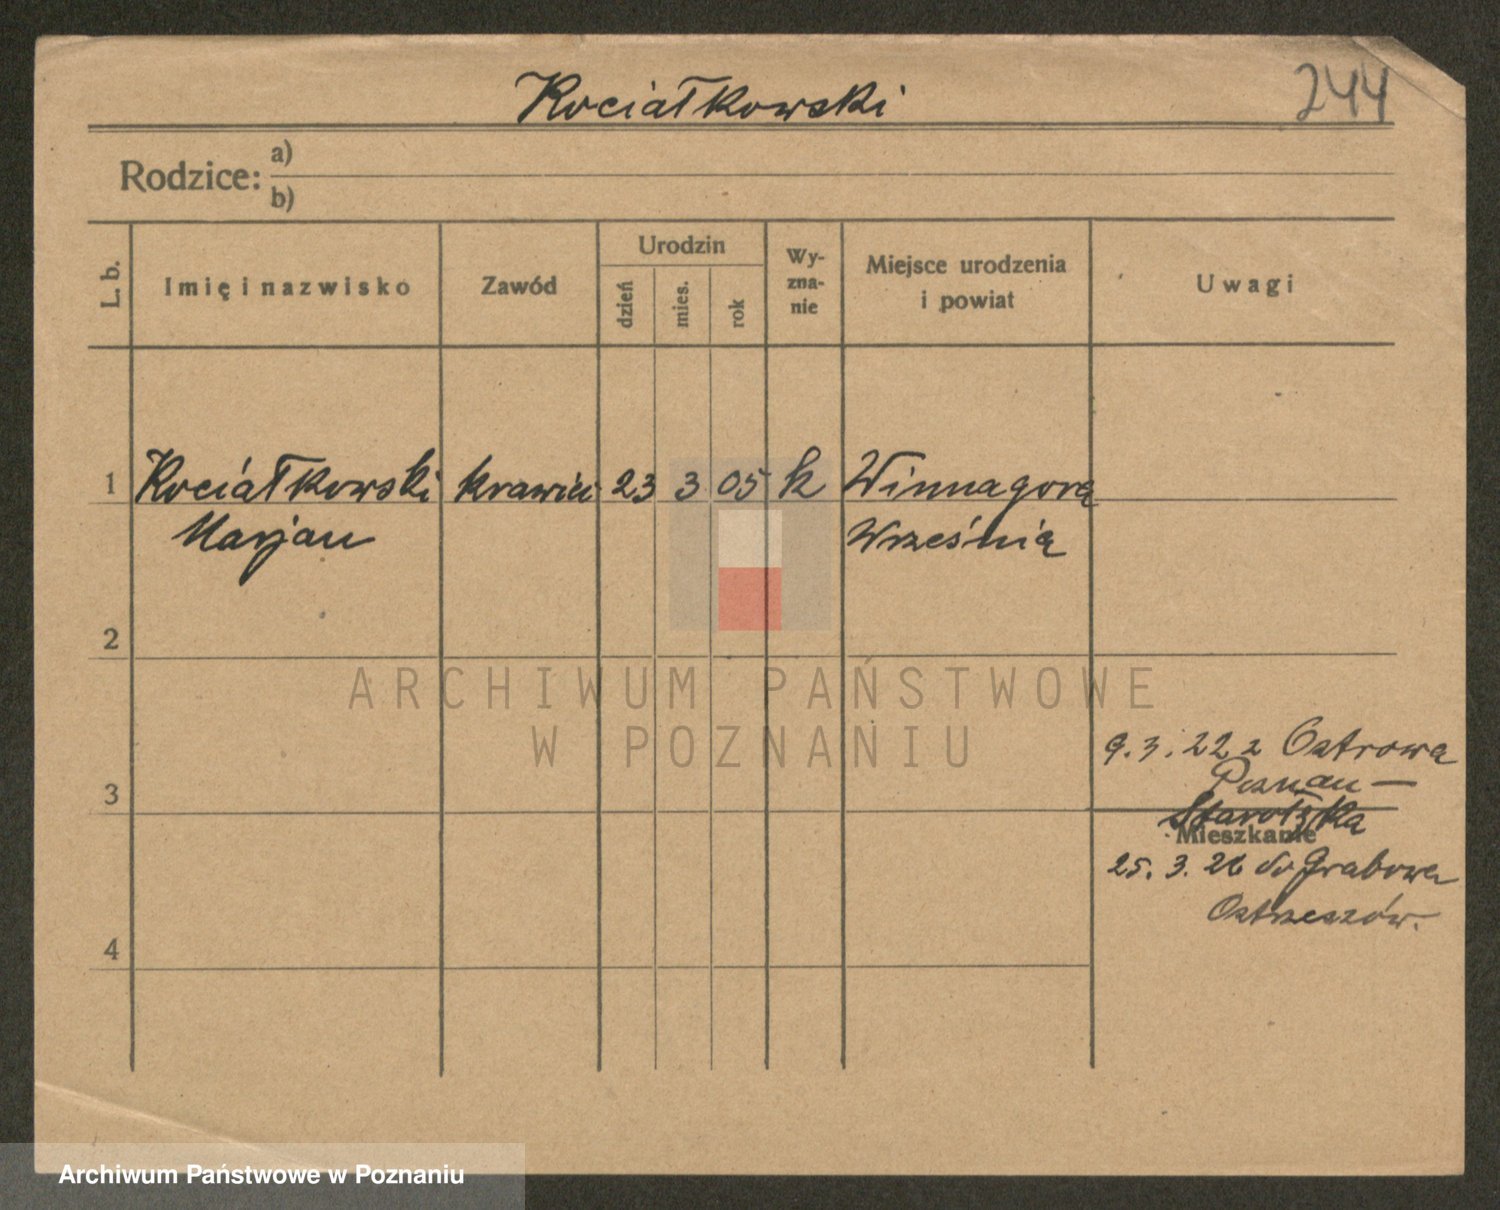 Kociałkowski
244
Rodzice: a)
b)
L. b.
Imię i nazwisko
Zawód
Urodzin
dzień
mies.
rok
Wy-
zna-
nie
Miejsce urodzenia
i powiat
Uwagi
1 Kociałkowski krawiec 23 3 05 k Winnagora
Marjan Września
2
9.3.22 z Ostrowa
Poznań –
3
Starołęka
Mieszkanie
25.3. do Grabowa
Ostrzeszów.
4
ARCHIWUM PAŃSTWOWE
W POZNANIU
Archiwum Państwowe w Poznaniu